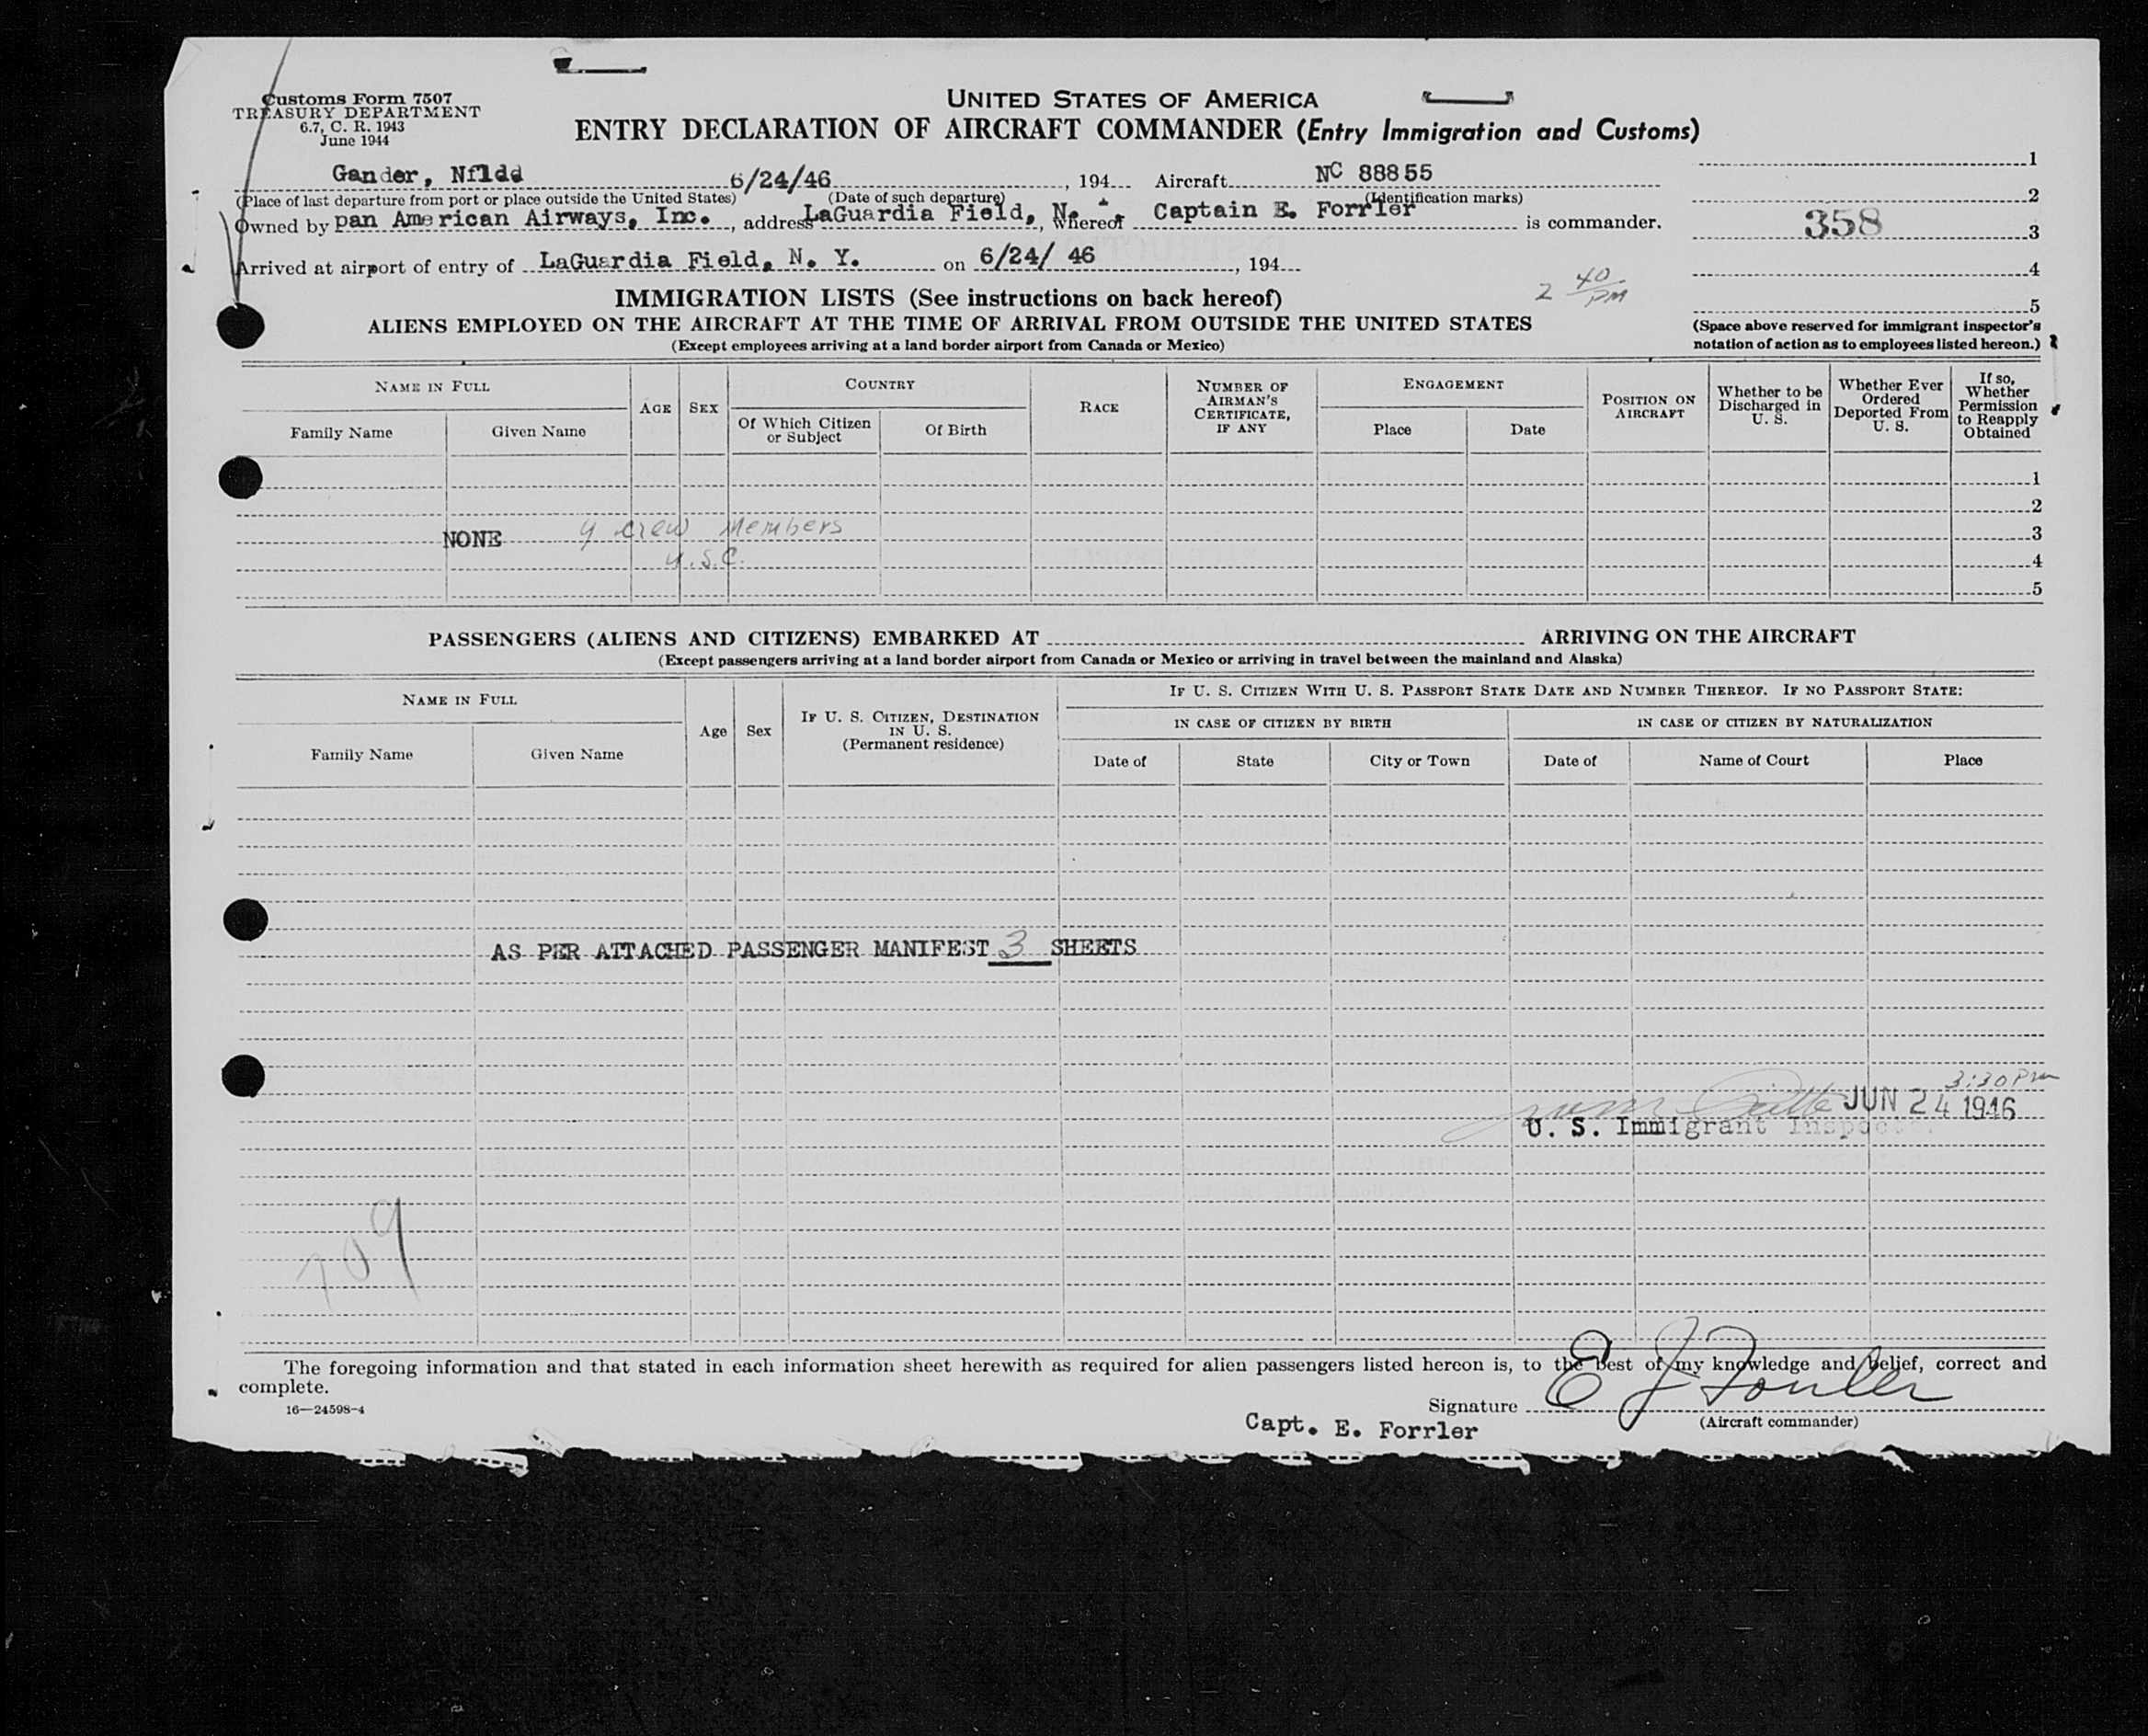 Customs Form 7507
TREASURY DEPARTMENT
6.7, C. R. 1943
June 1944
UNITED STATES OF AMERICA
ENTRY DECLARATION OF AIRCRAFT COMMANDER (Entry Immigration and Customs)
Gander, Nfldd 6/24/46, 194 Aircraft NC 88855
(Place of last departure from port or place outside the United States) (Date of such departure) (Identification marks)
Owned by pan American Airways, Inc., address LaGuardia Field, N. Whereof Captain E. Forrler is commander.
Arrived at airport of entry of LaGuardia Field, N. Y. on 6/24/ 46, 194
1
2
358 3
4
5
(Space above reserved for immigrant inspector's notation of action as to employees listed hereon.)
2 40 PM
IMMIGRATION LISTS (See instructions on back hereof)
ALIENS EMPLOYED ON THE AIRCRAFT AT THE TIME OF ARRIVAL FROM OUTSIDE THE UNITED STATES
(Except employees arriving at a land border airport from Canada or Mexico)
NAME IN FULL
Family Name Given Name
AGE SEX
COUNTRY
Of Which Citizen or Subject Of Birth
RACE
NUMBER OF AIRMAN'S CERTIFICATE, IF ANY
ENGAGEMENT
Place Date
POSITION ON AIRCRAFT
Whether to be Discharged in U. S.
Whether Ever Ordered Deported From U. S.
If so, Whether Permission to Reapply Obtained
1
2
NONE crew members 3
U.S.C. 4
5
PASSENGERS (ALIENS AND CITIZENS) EMBARKED AT ARRIVING ON THE AIRCRAFT
(Except passengers arriving at a land border airport from Canada or Mexico or arriving in travel between the mainland and Alaska)
NAME IN FULL
Family Name Given Name
Age Sex
IF U. S. CITIZEN, DESTINATION IN U. S. (Permanent residence)
IF U. S. CITIZEN WITH U. S. PASSPORT STATE DATE AND NUMBER THEREOF. IF NO PASSPORT STATE:
IN CASE OF CITIZEN BY BIRTH IN CASE OF CITIZEN BY NATURALIZATION
Date of State City or Town Date of Name of Court Place
AS PER ATTACHED PASSENGER MANIFEST 3 SHEETS
3:30 PM
JUN 24 1946
U. S. Immigrant Inspector
709
The foregoing information and that stated in each information sheet herewith as required for alien passengers listed hereon is, to the best of my knowledge and belief, correct and
complete.
16—24598-4
Signature E J Forrler
(Aircraft commander)
Capt. E. Forrler